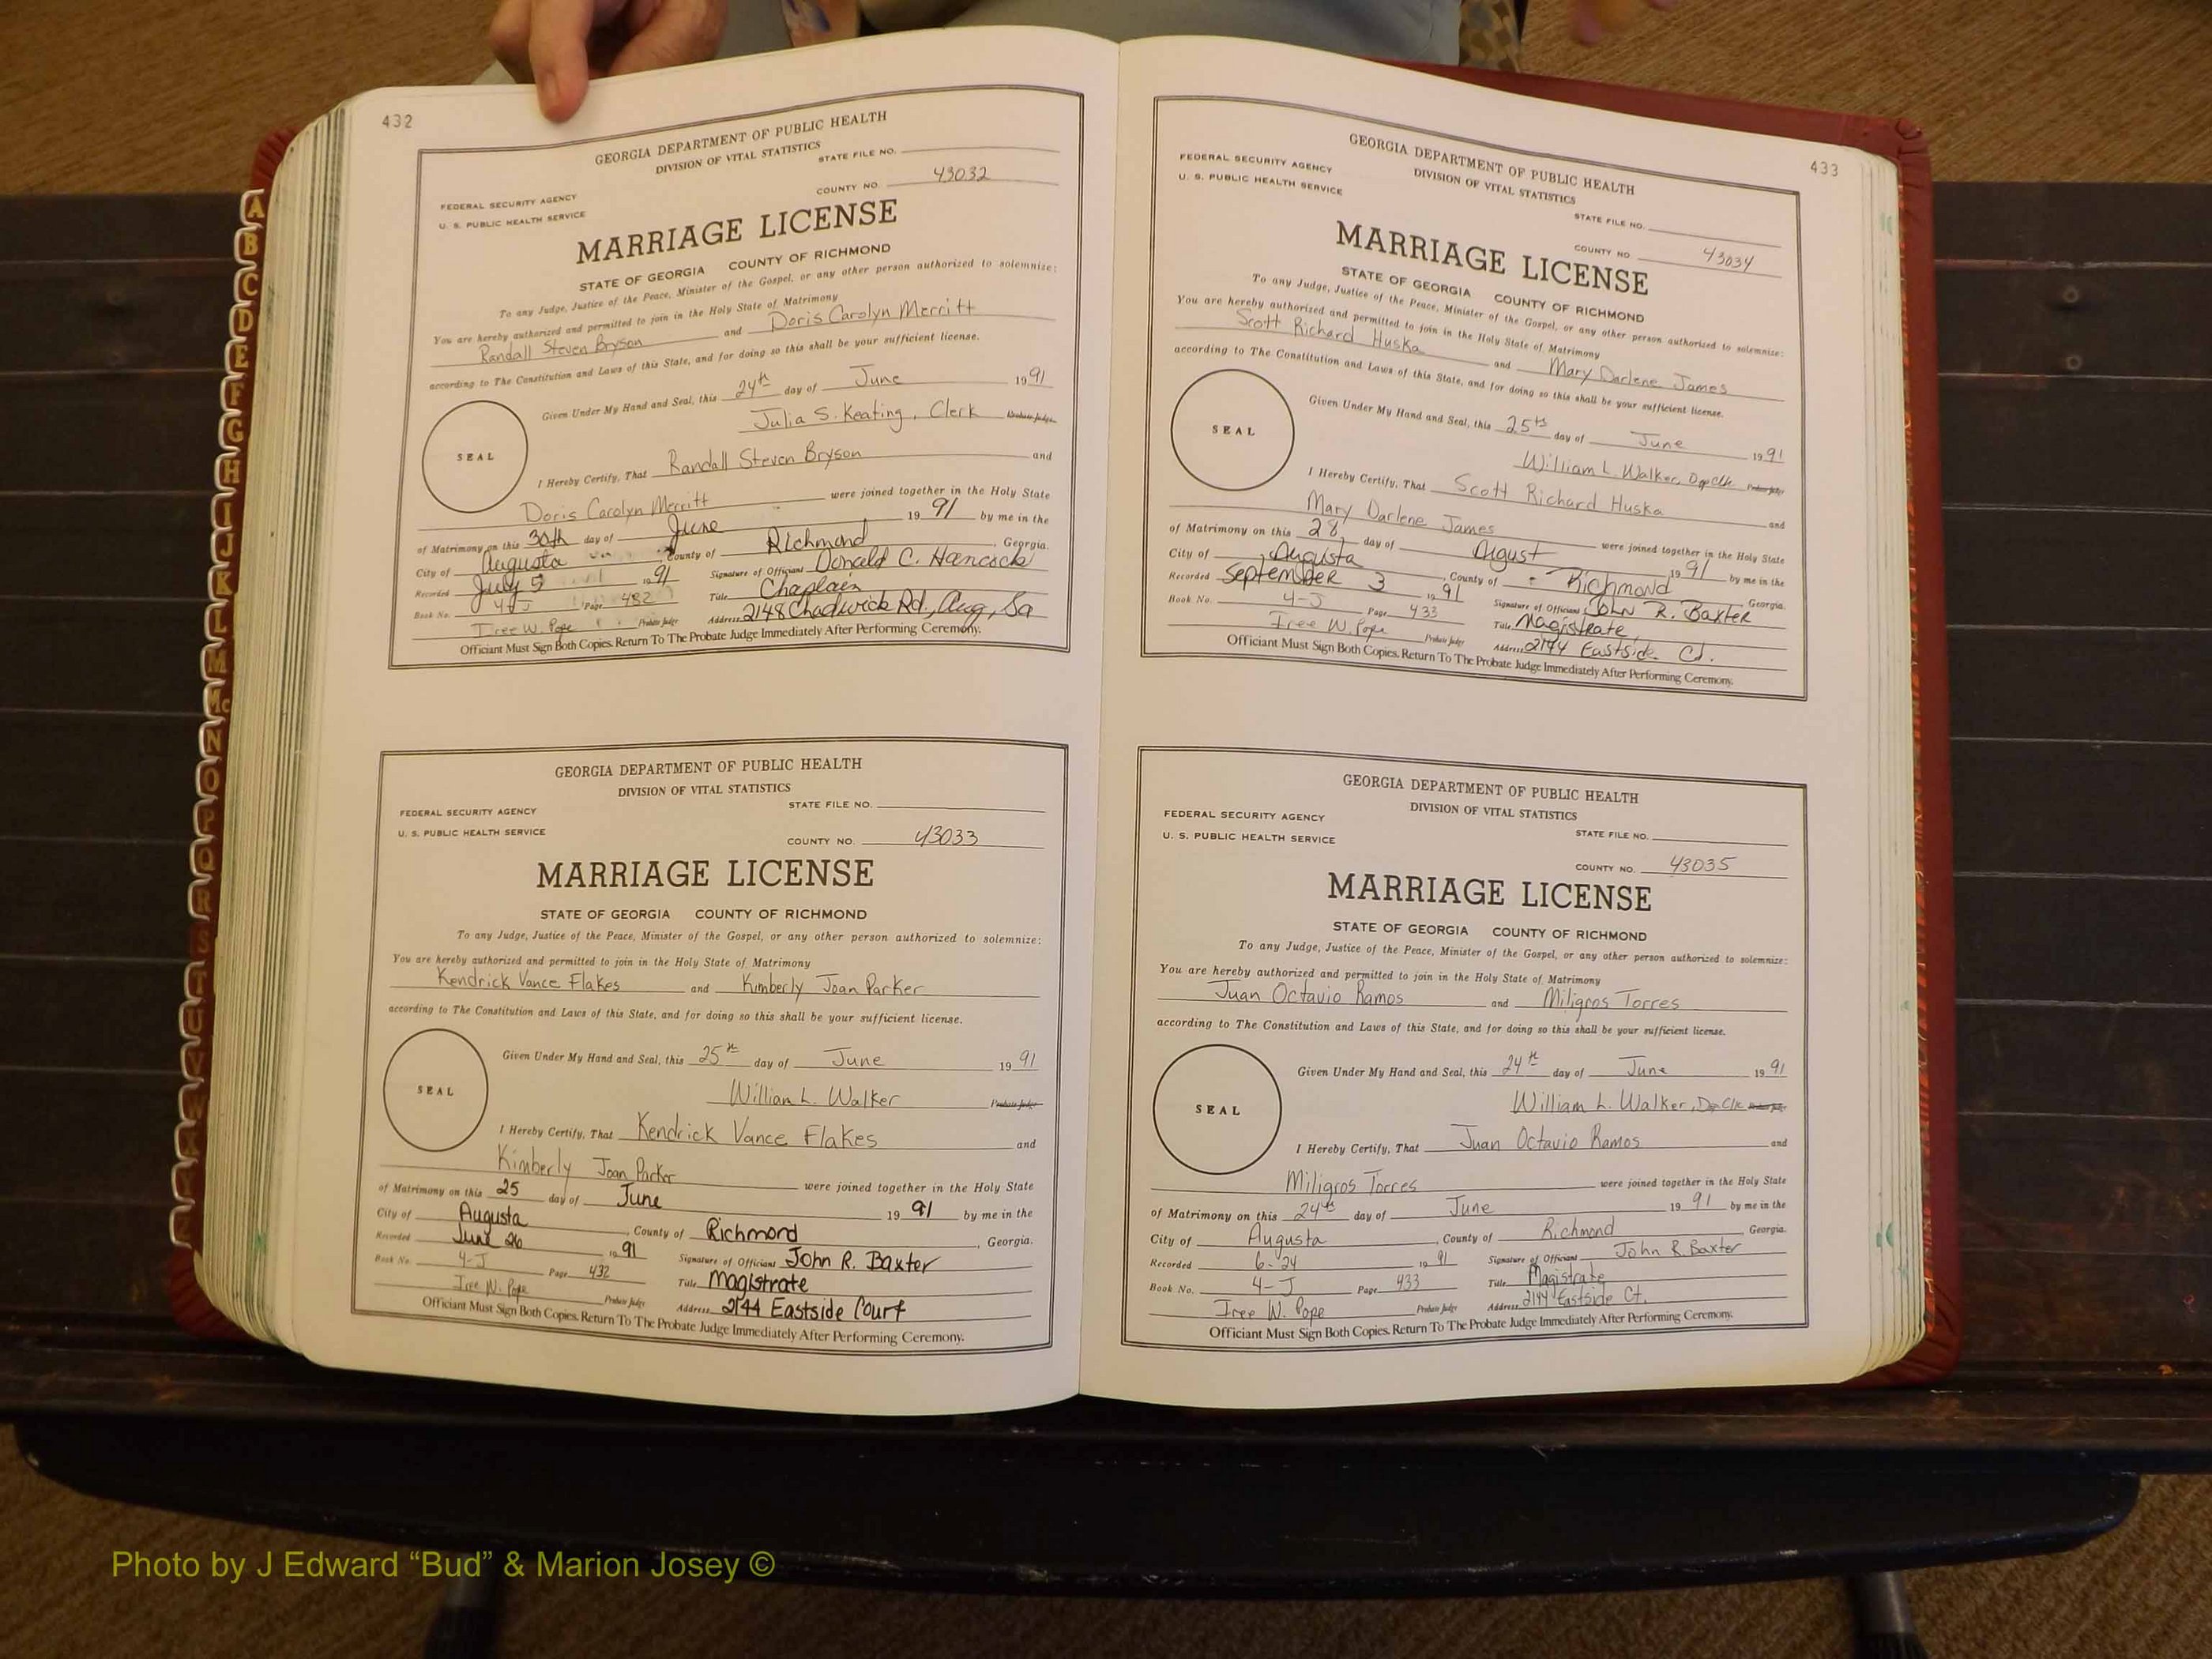 432
GEORGIA DEPARTMENT OF PUBLIC HEALTH
DIVISION OF VITAL STATISTICS
STATE FILE NO.
COUNTY NO. 43032
FEDERAL SECURITY AGENCY
U. S. PUBLIC HEALTH SERVICE
MARRIAGE LICENSE
STATE OF GEORGIA COUNTY OF RICHMOND
To any Judge, Justice of the Peace, Minister of the Gospel, or any other person authorized to solemnize:
You are hereby authorized and permitted to join in the Holy State of Matrimony
Randall Steven Bryson and Doris Carolyn Merritt
according to The Constitution and Laws of this State, and for doing so this shall be your sufficient license.
Given Under My Hand and Seal, this 24th day of June 1991
Julia S. Keating, Clerk Probate Judge
SEAL
I Hereby Certify, That Randall Steven Bryson and
Doris Carolyn Merritt were joined together in the Holy State
of Matrimony on this 30th day of June 1991 by me in the
City of Augusta County of Richmond, Georgia.
Recorded July 5 1991 Signature of Officiant Donald C. Hancock
Book No. 4-J Page 432 Title Chaplain
Iree W. Pope Probate Judge Address 2148 Chadwick Rd., Aug, Ga
Officiant Must Sign Both Copies. Return To The Probate Judge Immediately After Performing Ceremony.
GEORGIA DEPARTMENT OF PUBLIC HEALTH
DIVISION OF VITAL STATISTICS
STATE FILE NO.
FEDERAL SECURITY AGENCY
U. S. PUBLIC HEALTH SERVICE
COUNTY NO. 43033
MARRIAGE LICENSE
STATE OF GEORGIA COUNTY OF RICHMOND
To any Judge, Justice of the Peace, Minister of the Gospel, or any other person authorized to solemnize:
You are hereby authorized and permitted to join in the Holy State of Matrimony
Kendrick Vance Flakes and Kimberly Joan Parker
according to The Constitution and Laws of this State, and for doing so this shall be your sufficient license.
Given Under My Hand and Seal, this 25th day of June 1991
William L. Walker Probate Judge
SEAL
I Hereby Certify, That Kendrick Vance Flakes and
Kimberly Joan Parker were joined together in the Holy State
of Matrimony on this 25 day of June 1991 by me in the
City of Augusta, County of Richmond, Georgia.
Recorded June 26 1991 Signature of Officiant John R. Baxter
Book No. 4-J Page 432 Title Magistrate
Iree W. Pope Probate Judge Address 2144 Eastside Court
Officiant Must Sign Both Copies. Return To The Probate Judge Immediately After Performing Ceremony.
433
GEORGIA DEPARTMENT OF PUBLIC HEALTH
DIVISION OF VITAL STATISTICS
FEDERAL SECURITY AGENCY
U. S. PUBLIC HEALTH SERVICE
STATE FILE NO.
COUNTY NO. 43034
MARRIAGE LICENSE
STATE OF GEORGIA COUNTY OF RICHMOND
To any Judge, Justice of the Peace, Minister of the Gospel, or any other person authorized to solemnize:
You are hereby authorized and permitted to join in the Holy State of Matrimony
Scott Richard Huska and Mary Darlene James
according to The Constitution and Laws of this State, and for doing so this shall be your sufficient license.
Given Under My Hand and Seal, this 25th day of June 1991
William L. Walker, Dep Clk Probate Judge
SEAL
I Hereby Certify, That Scott Richard Huska and
Mary Darlene James were joined together in the Holy State
of Matrimony on this 28, day of August 1991 by me in the
City of Augusta, County of Richmond Georgia.
Recorded September 3 1991 Signature of Officiant John R. Baxter
Book No. 4-J Page 433 Title Magistrate,
Iree W. Pope Probate Judge Address 2144 Eastside Ct.
Officiant Must Sign Both Copies. Return To The Probate Judge Immediately After Performing Ceremony.
GEORGIA DEPARTMENT OF PUBLIC HEALTH
DIVISION OF VITAL STATISTICS
FEDERAL SECURITY AGENCY
U. S. PUBLIC HEALTH SERVICE
STATE FILE NO.
COUNTY NO. 43035
MARRIAGE LICENSE
STATE OF GEORGIA COUNTY OF RICHMOND
To any Judge, Justice of the Peace, Minister of the Gospel, or any other person authorized to solemnize:
You are hereby authorized and permitted to join in the Holy State of Matrimony
Juan Octavio Ramos and Miligros Torres
according to The Constitution and Laws of this State, and for doing so this shall be your sufficient license.
Given Under My Hand and Seal, this 24th day of June 1991
William L. Walker, Dep Clk Probate Judge
SEAL
I Hereby Certify, That Juan Octavio Ramos and
Miligros Torres were joined together in the Holy State
of Matrimony on this 24th day of June 1991 by me in the
City of Augusta, County of Richmond Georgia.
Recorded 6-24 1991 Signature of Officiant John R. Baxter
Book No. 4-J Page 433 Title Magistrate
Iree W. Pope Probate Judge Address 2144 Eastside Ct.
Officiant Must Sign Both Copies. Return To The Probate Judge Immediately After Performing Ceremony.
A
B
C
D
E
F
G
H
I
J
K
L
M
Mc
N
O
P
Q
R
S
T
U
V
Photo by J Edward “Bud” & Marion Josey ©